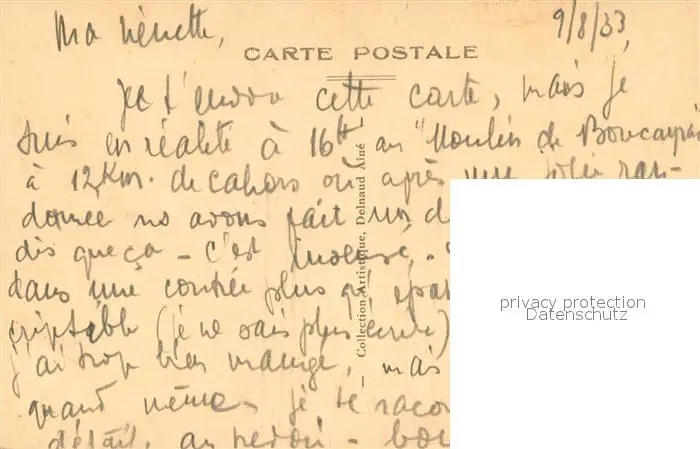 Ma Nénette,
9/8/33
CARTE POSTALE
Je t'envoie cette carte, mais je
suis en réalité à 16h au "Moulin de
à 12 Km. de Cahors où après une jolie ran-
donnée ns avons fait un d
dis que ça - c'est
dans une contrée plus qu'
criptible (je ne sais plus écrire)
j'ai trop bien mangé, mais
quand même je te raco
détail, au revoir -
— Collection Artistique, Delnaud Ainé
privacy protection
Datenschutz